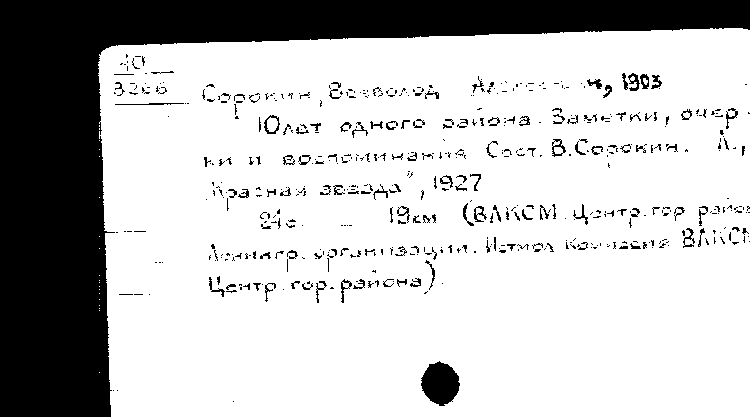 40
8266
Сорокин, Всеволод Алексеевич, 1903
10 лет одного района. Заметки, очер-
ки и воспоминания Сост. В. Сорокин. Л.,
"Красная звезда", 1927
24 с. 19 см (ВЛКСМ. Центр. гор район
Ленингр. организации. Истмол комиссия ВЛКСМ
Центр. гор. района).